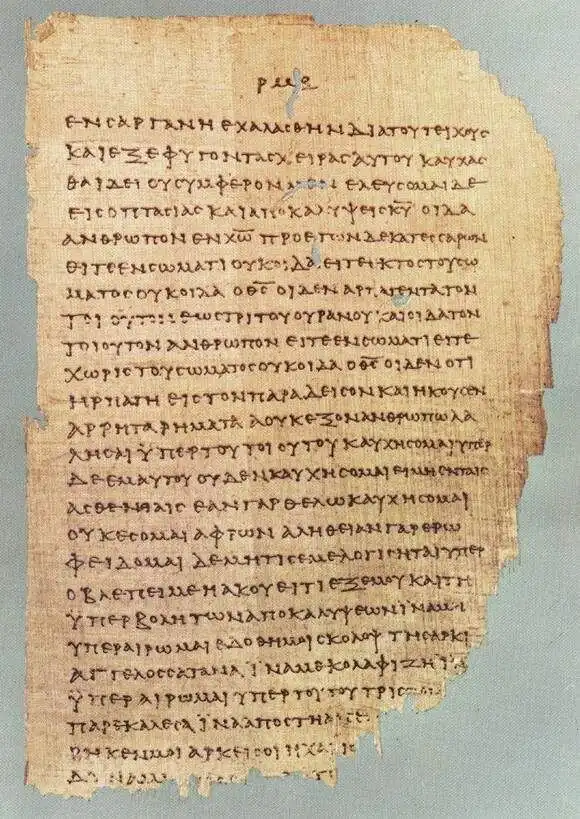 ρμε
ΕΝ ΣΑΡΓΑΝΗ ΕΧΑΛΑΣΘΗΝ ΔΙΑ ΤΟΥ ΤΕΙΧΟΥΣ
ΚΑΙ ΕΞΕΦΥΓΟΝ ΤΑΣ ΧΕΙΡΑΣ ΑΥΤΟΥ ΚΑΥΧΑΣ
ΘΑΙ ΔΕΙ ΟΥ ΣΥΜΦΕΡΟΝ ΜΕΝ ΕΛΕΥΣΟΜΑΙ ΔΕ
ΕΙΣ ΟΠΤΑΣΙΑΣ ΚΑΙ ΑΠΟΚΑΛΥΨΕΙΣ ΚΥ̅ ΟΙΔΑ
ΑΝΘΡΩΠΟΝ ΕΝ ΧΩ̅ ΠΡΟ ΕΤΩΝ ΔΕΚΑΤΕΣΣΑΡΩΝ
ΕΙΤΕ ΕΝ ΣΩΜΑΤΙ ΟΥΚ ΟΙΔΑ ΕΙΤΕ ΕΚΤΟΣ ΤΟΥ ΣΩ
ΜΑΤΟΣ ΟΥΚ ΟΙΔΑ Ο ΘΣ̅ ΟΙΔΕΝ ΑΡΠΑΓΕΝΤΑ ΤΟΝ
ΤΟΙΟΥΤΟΝ ΕΩΣ ΤΡΙΤΟΥ ΟΥΡΑΝΟΥ ΚΑΙ ΟΙΔΑ ΤΟΝ
ΤΟΙΟΥΤΟΝ ΑΝΘΡΩΠΟΝ ΕΙΤΕ ΕΝ ΣΩΜΑΤΙ ΕΙΤΕ
ΧΩΡΙΣ ΤΟΥ ΣΩΜΑΤΟΣ ΟΥΚ ΟΙΔΑ Ο ΘΣ̅ ΟΙΔΕΝ ΟΤΙ
ΗΡΠΑΓΗ ΕΙΣ ΤΟΝ ΠΑΡΑΔΕΙΣΟΝ ΚΑΙ ΗΚΟΥΣΕΝ
ΑΡΡΗΤΑ ΡΗΜΑΤΑ Α ΟΥΚ ΕΞΟΝ ΑΝΘΡΩΠΩ ΛΑ
ΛΗΣΑΙ ΫΠΕΡ ΤΟΥ ΤΟΙΟΥΤΟΥ ΚΑΥΧΗΣΟΜΑΙ ΥΠΕΡ
ΔΕ ΕΜΑΥΤΟΥ ΟΥΔΕΝ ΚΑΥΧΗΣΟΜΑΙ ΕΙ ΜΗ ΕΝ ΤΑΙΣ
ΑΣΘΕΝΙΑΙΣ ΕΑΝ ΓΑΡ ΘΕΛΩ ΚΑΥΧΗΣΟΜΑΙ
ΟΥΚ ΕΣΟΜΑΙ ΑΦΡΩΝ ΑΛΗΘΕΙΑΝ ΓΑΡ ΕΡΩ
ΦΕΙΔΟΜΑΙ ΔΕ ΜΗ ΤΙΣ ΕΜΕ ΛΟΓΙΣΗΤΑΙ ΥΠΕΡ
Ο ΒΛΕΠΕΙ ΜΕ Η ΑΚΟΥΕΙ ΤΙ ΕΞ ΕΜΟΥ ΚΑΙ ΤΗ
ΫΠΕΡΒΟΛΗ ΤΩΝ ΑΠΟΚΑΛΥΨΕΩΝ ΪΝΑ ΜΗ
ΥΠΕΡΑΙΡΩΜΑΙ ΕΔΟΘΗ ΜΟΙ ΣΚΟΛΟΨ ΤΗ ΣΑΡΚΙ
ΑΓΓΕΛΟΣ ΣΑΤΑΝΑ ΪΝΑ ΜΕ ΚΟΛΑΦΙΖΗ ΪΝΑ
ΫΠΕΡΑΙΡΩΜΑΙ ΥΠΕΡ ΤΟΥΤΟΥ ΤΡΙΣ
ΠΑΡΕΚΑΛΕΣΑ ΪΝΑ ΑΠΟΣΤΗ
ΡΗΚΕΝ ΜΟΙ ΑΡΚΕΙ ΣΟΙ Η ΧΑΡΙΣ